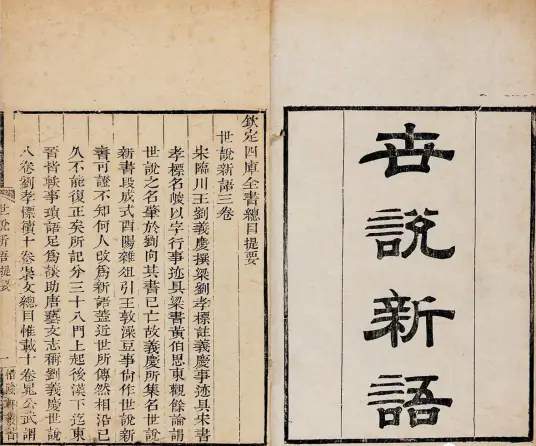 世說新語
欽定四庫全書總目提要
世說新語三卷
宋臨川王劉義慶撰梁劉孝標註義慶事迹具宋書
孝標名峻以字行事迹具梁書黃伯思東觀餘論謂
世說之名肇於劉向其書已亡故義慶所集名世說
新書段成式酉陽雜俎引王敦澡豆事尚作世說新
書可證不知何人改為新語蓋近世所傳然相沿已
久不能復正矣所記分三十八門上起後漢下迄東
晉皆軼事瑣語足為談助唐藝文志稱劉義慶世說
八卷劉孝標續十卷崇文總目惟載十卷晁公武謂
世說新語提要
一